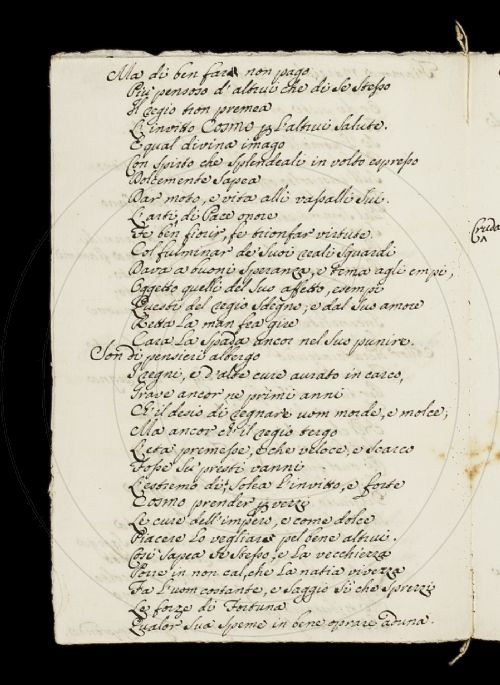 Ma di ben fare non pago
Più pensoso d'altrui che di se stesso
Il regio tron premea
L'invitto Cosmo p l'altrui salute.
E qual divina imago
Con spirto che splendeali in volto espresso
Dolcemente sapea
Dar moto, e vita alli vassalli sui.
L'arti di Pace opore
Fe ben fiorir, fe trionfar virtute.
Col fulminar de suoi reali sguardi
Dava a buoni speranza, e tema agli empi,
Oggetto quelli del suo affetto, esempi
Questi del regio sdegno; e dal suo amore
Retta la man fea gire
Cara la spada ancor nel suo punire.
Son di pensieri albergo
I regni, e d'alte cure aurato in carco,
Grave ancor ne primi anni
Ch'il desio di regnare uom morde, e molce;
Ma ancor ch'il regio tergo
L'età premesse, e che veloce, e scarco
Fosse su presti vanni
L'estremo dì; solea l'invitto, e forte
Cosmo prender p vezzi
Le cure dell'impero, e come dolce
Piacere lo vegliare pel bene altrui.
Così sapea se stesso, e la vecchiezza
Porre in non cal, che la natia vivezza
Fa l'uom costante, e saggio sì che sprezzi
Le forze di Fortuna
Qualor sua speme in bene oprare aduna.
Cruda